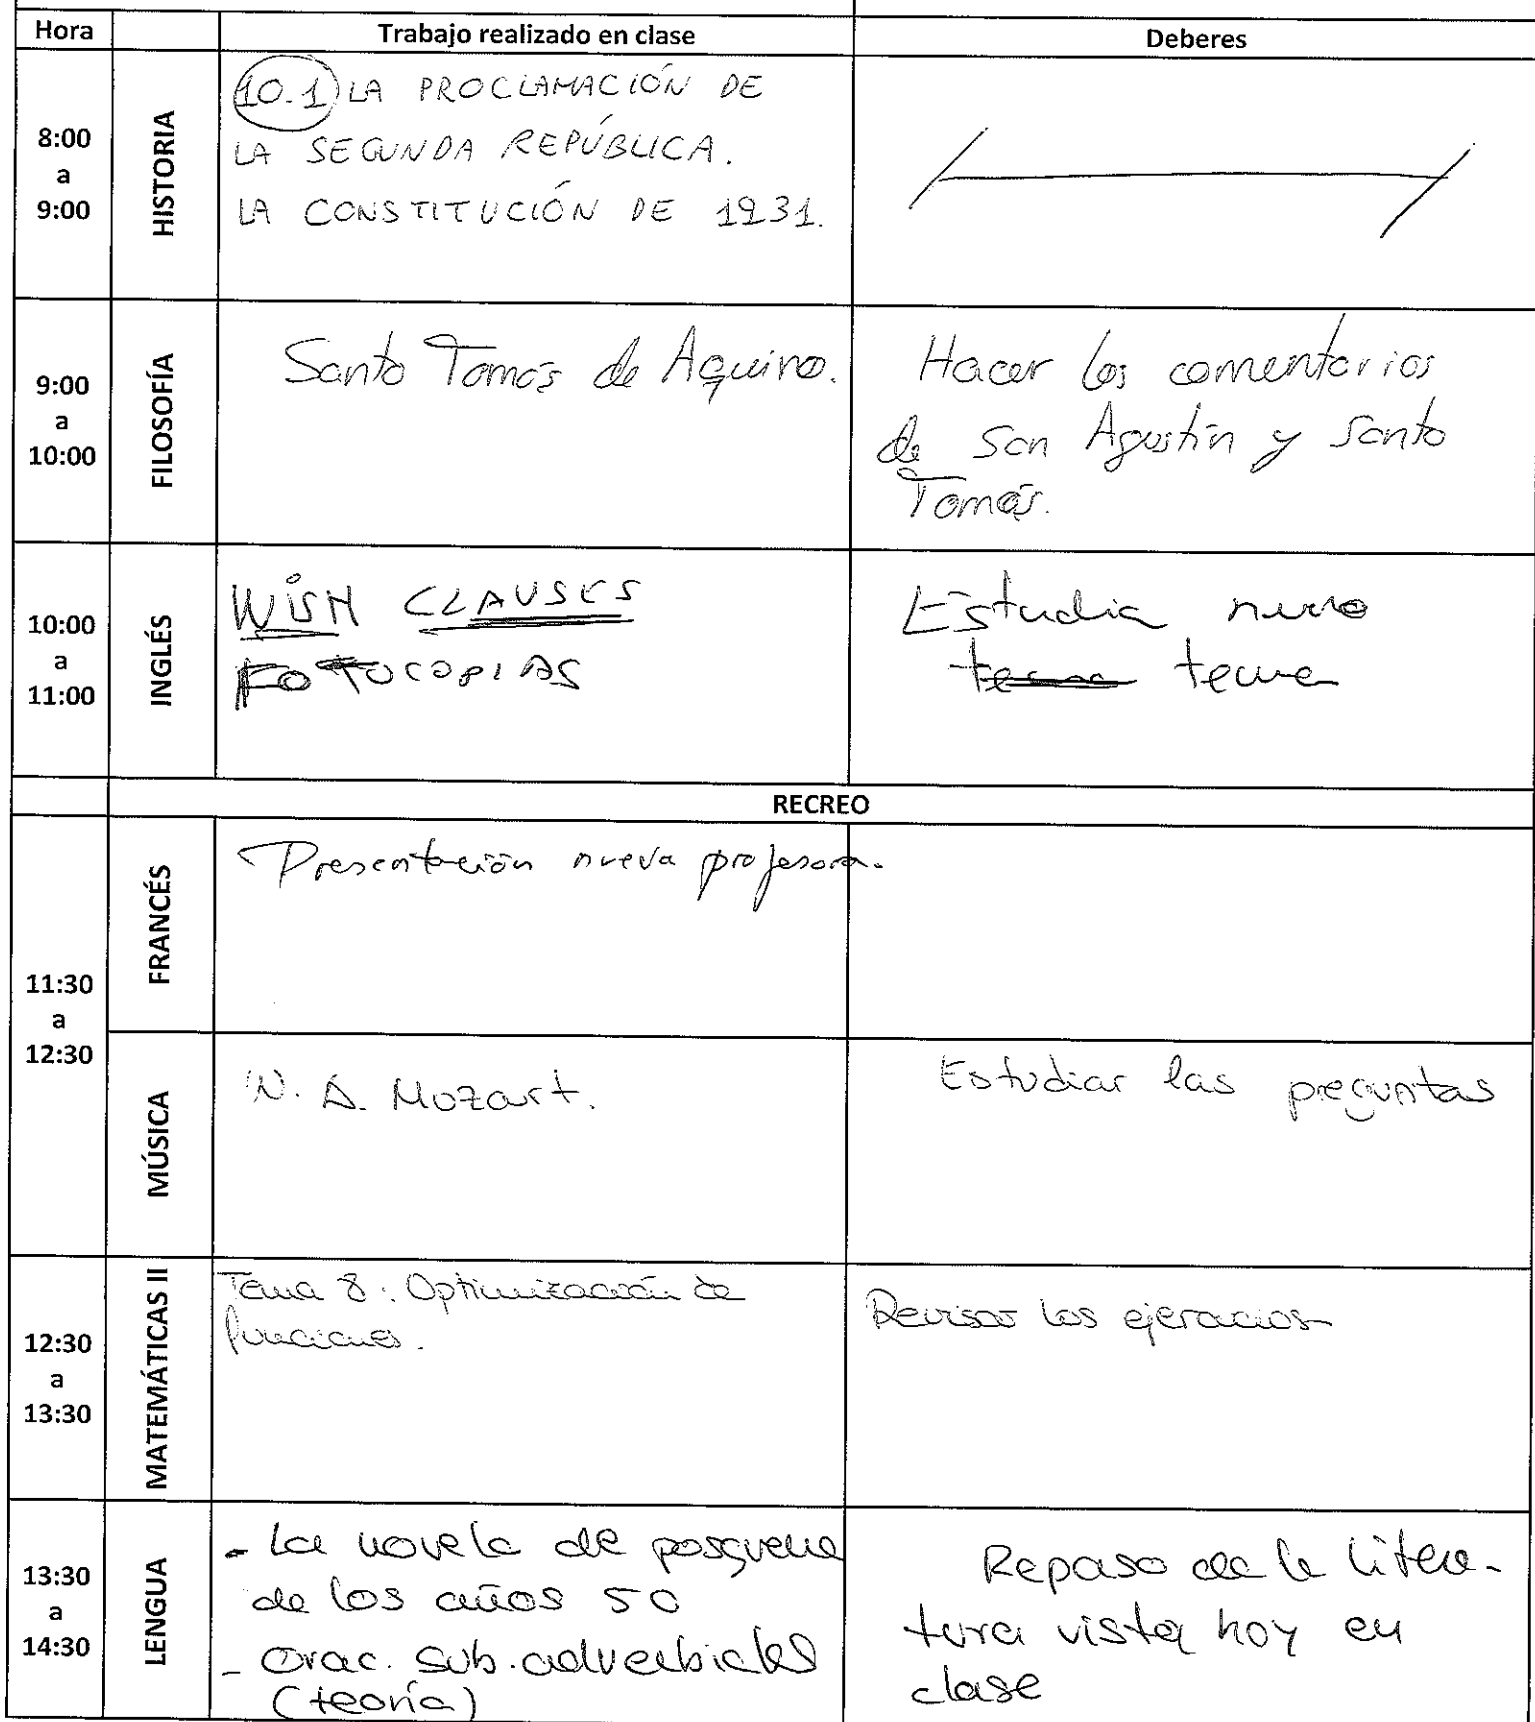 Hora Trabajo realizado en clase Deberes
8:00
a
9:00
HISTORIA
10.1 LA PROCLAMACIÓN DE
LA SEGUNDA REPÚBLICA.
LA CONSTITUCIÓN DE 1931.
9:00
a
10:00
FILOSOFÍA
Santo Tomás de Aquino.
Hacer los comentarios
de San Agustín y Santo
Tomás.
10:00
a
11:00
INGLÉS
WISH CLAUSES
FOTOCOPIAS
Estudia
tema tema
RECREO
11:30
a
12:30
FRANCÉS
Presentación nueva profesora.
MÚSICA
W. A. Mozart.
Estudiar las preguntas
12:30
a
13:30
MATEMÁTICAS II
Tema 8: Optimización de
funciones.
Revisar los ejercicios
13:30
a
14:30
LENGUA
- La novela de posguerra
de los años 50
- Orac. sub. adverbiales
(teoría)
Repaso de la litera-
tura vista hoy en
clase